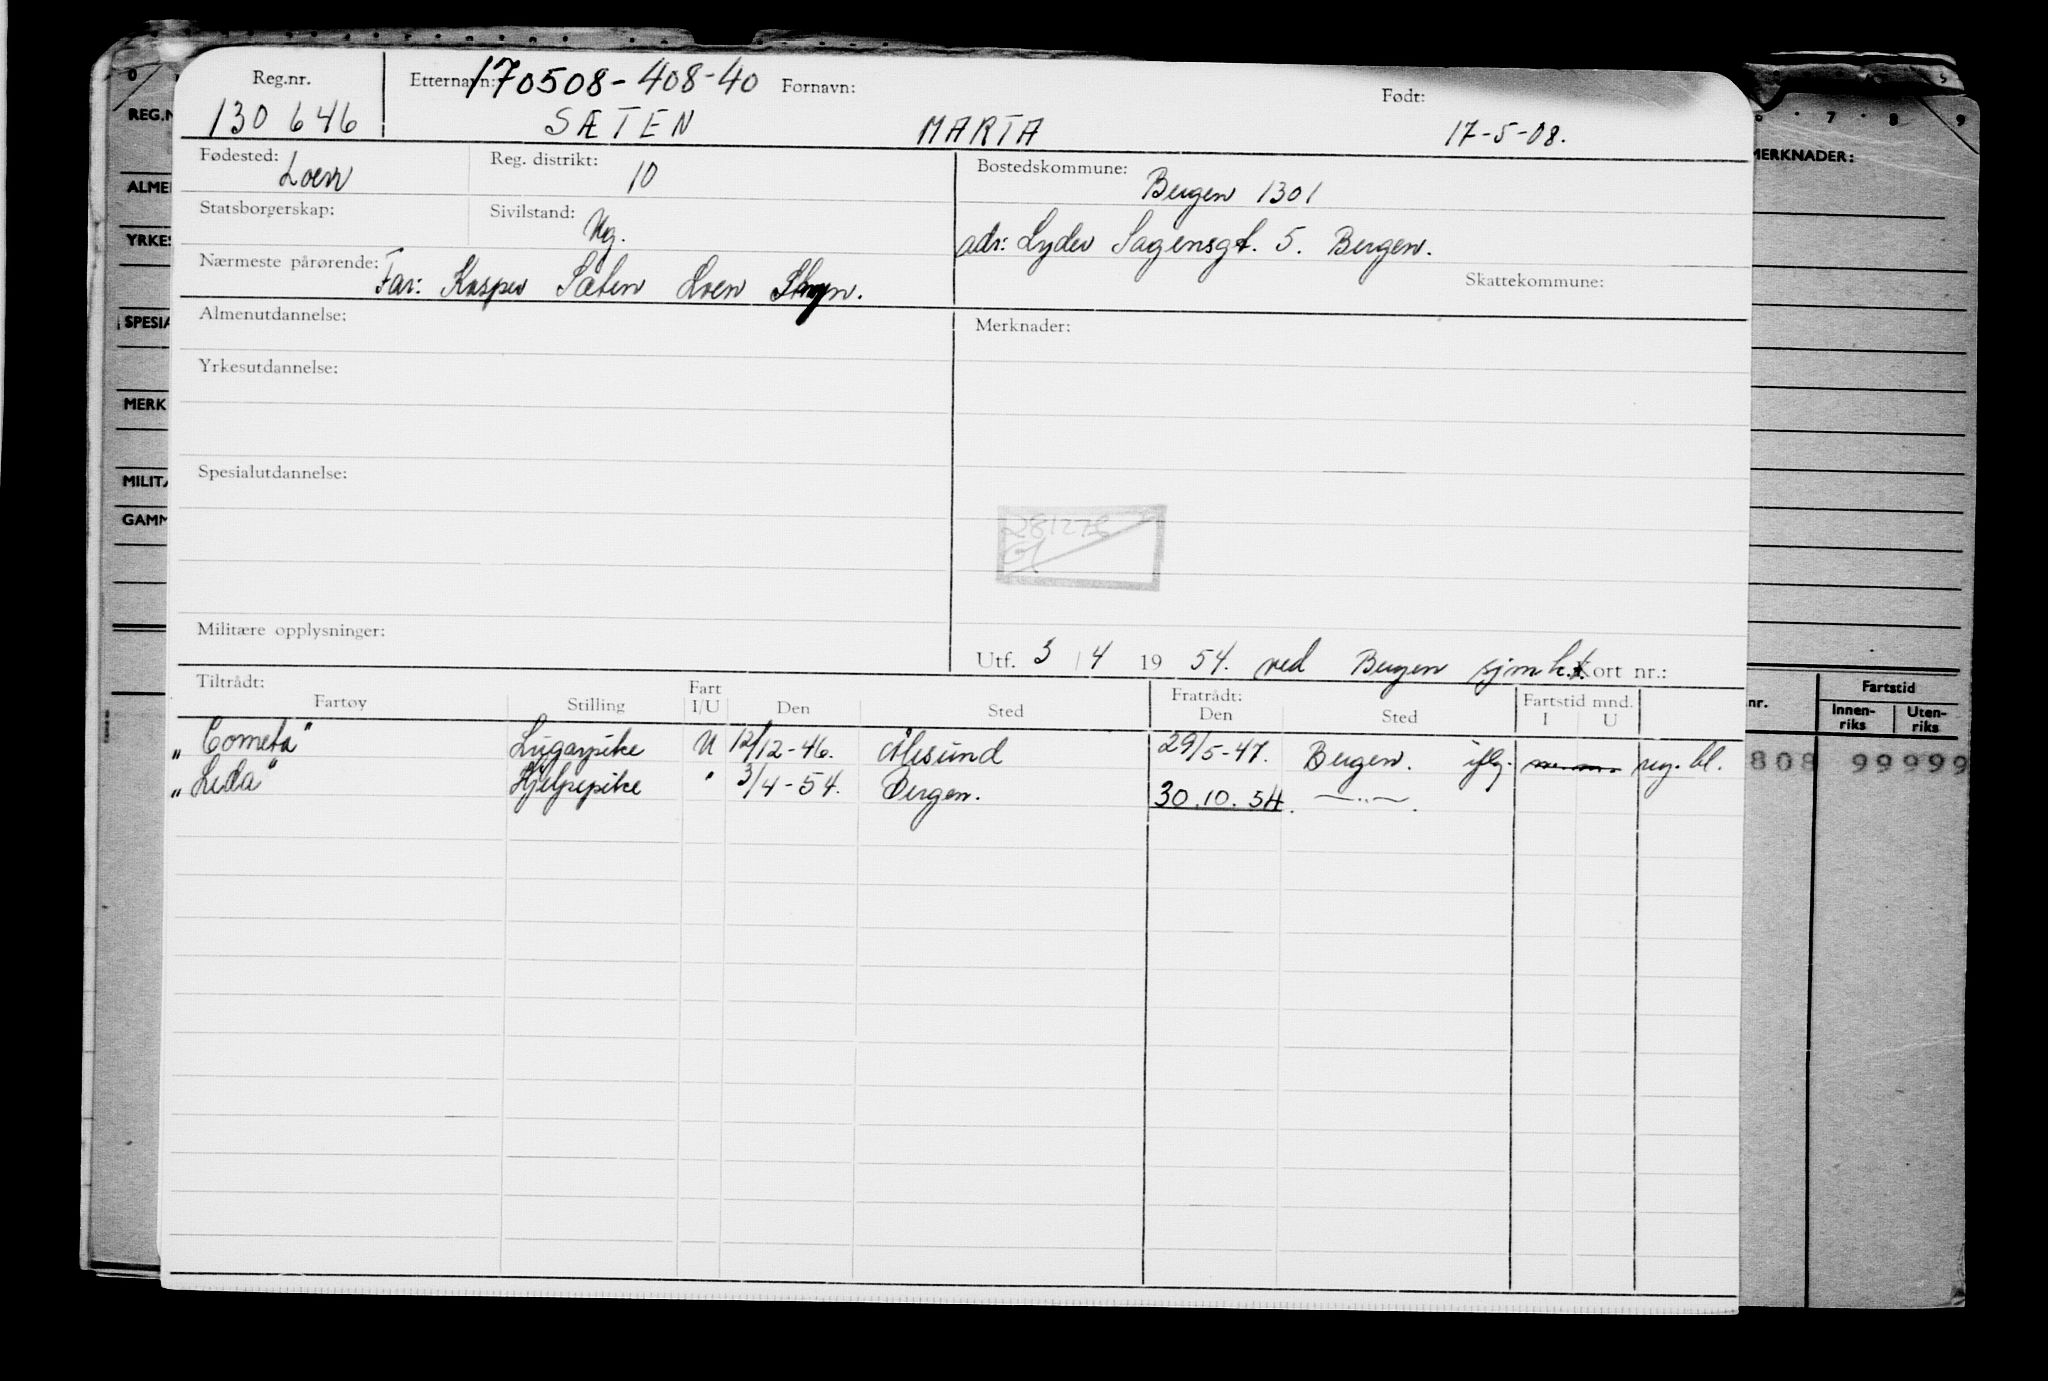 Reg.nr. Etternavn: 170508-408-40 Fornavn: Født:
130646 SÆTEN MARTA 17-5-08.
Fødested: Loen Reg. distrikt: 10 Bostedskommune: Bergen 1301
Statsborgerskap: Sivilstand: Ug. adr: Lyder Sagensgt. 5. Bergen.
Nærmeste pårørende: Far: Kasper Sæten Loen Stryn. Skattekommune:
Almenutdannelse: Merknader:
Yrkesutdannelse:
Spesialutdannelse:
281278
Militære opplysninger:
Utf. 3/4 1954. ved Bergen sjmk.t. Kort nr.:
Tiltrådt: Fart Fratrådt: Fartstid mnd.
Fartøy Stilling I/U Den Sted Den Sted I U
"Cometa" Lugarpike U 12/12-46. Ålesund 29/5-47. Bergen. iflg. reg. bl.
"Leda" Hjelpepike " 3/4-54. Bergen. 30.10.54. —"—.
REG.N
ALME
YRKES
SPESIA
MERK
MILITÆ
GAMM
7 8 9
MERKNADER:
nr. Fartstid
Innen-riks Uten-riks
808 99999